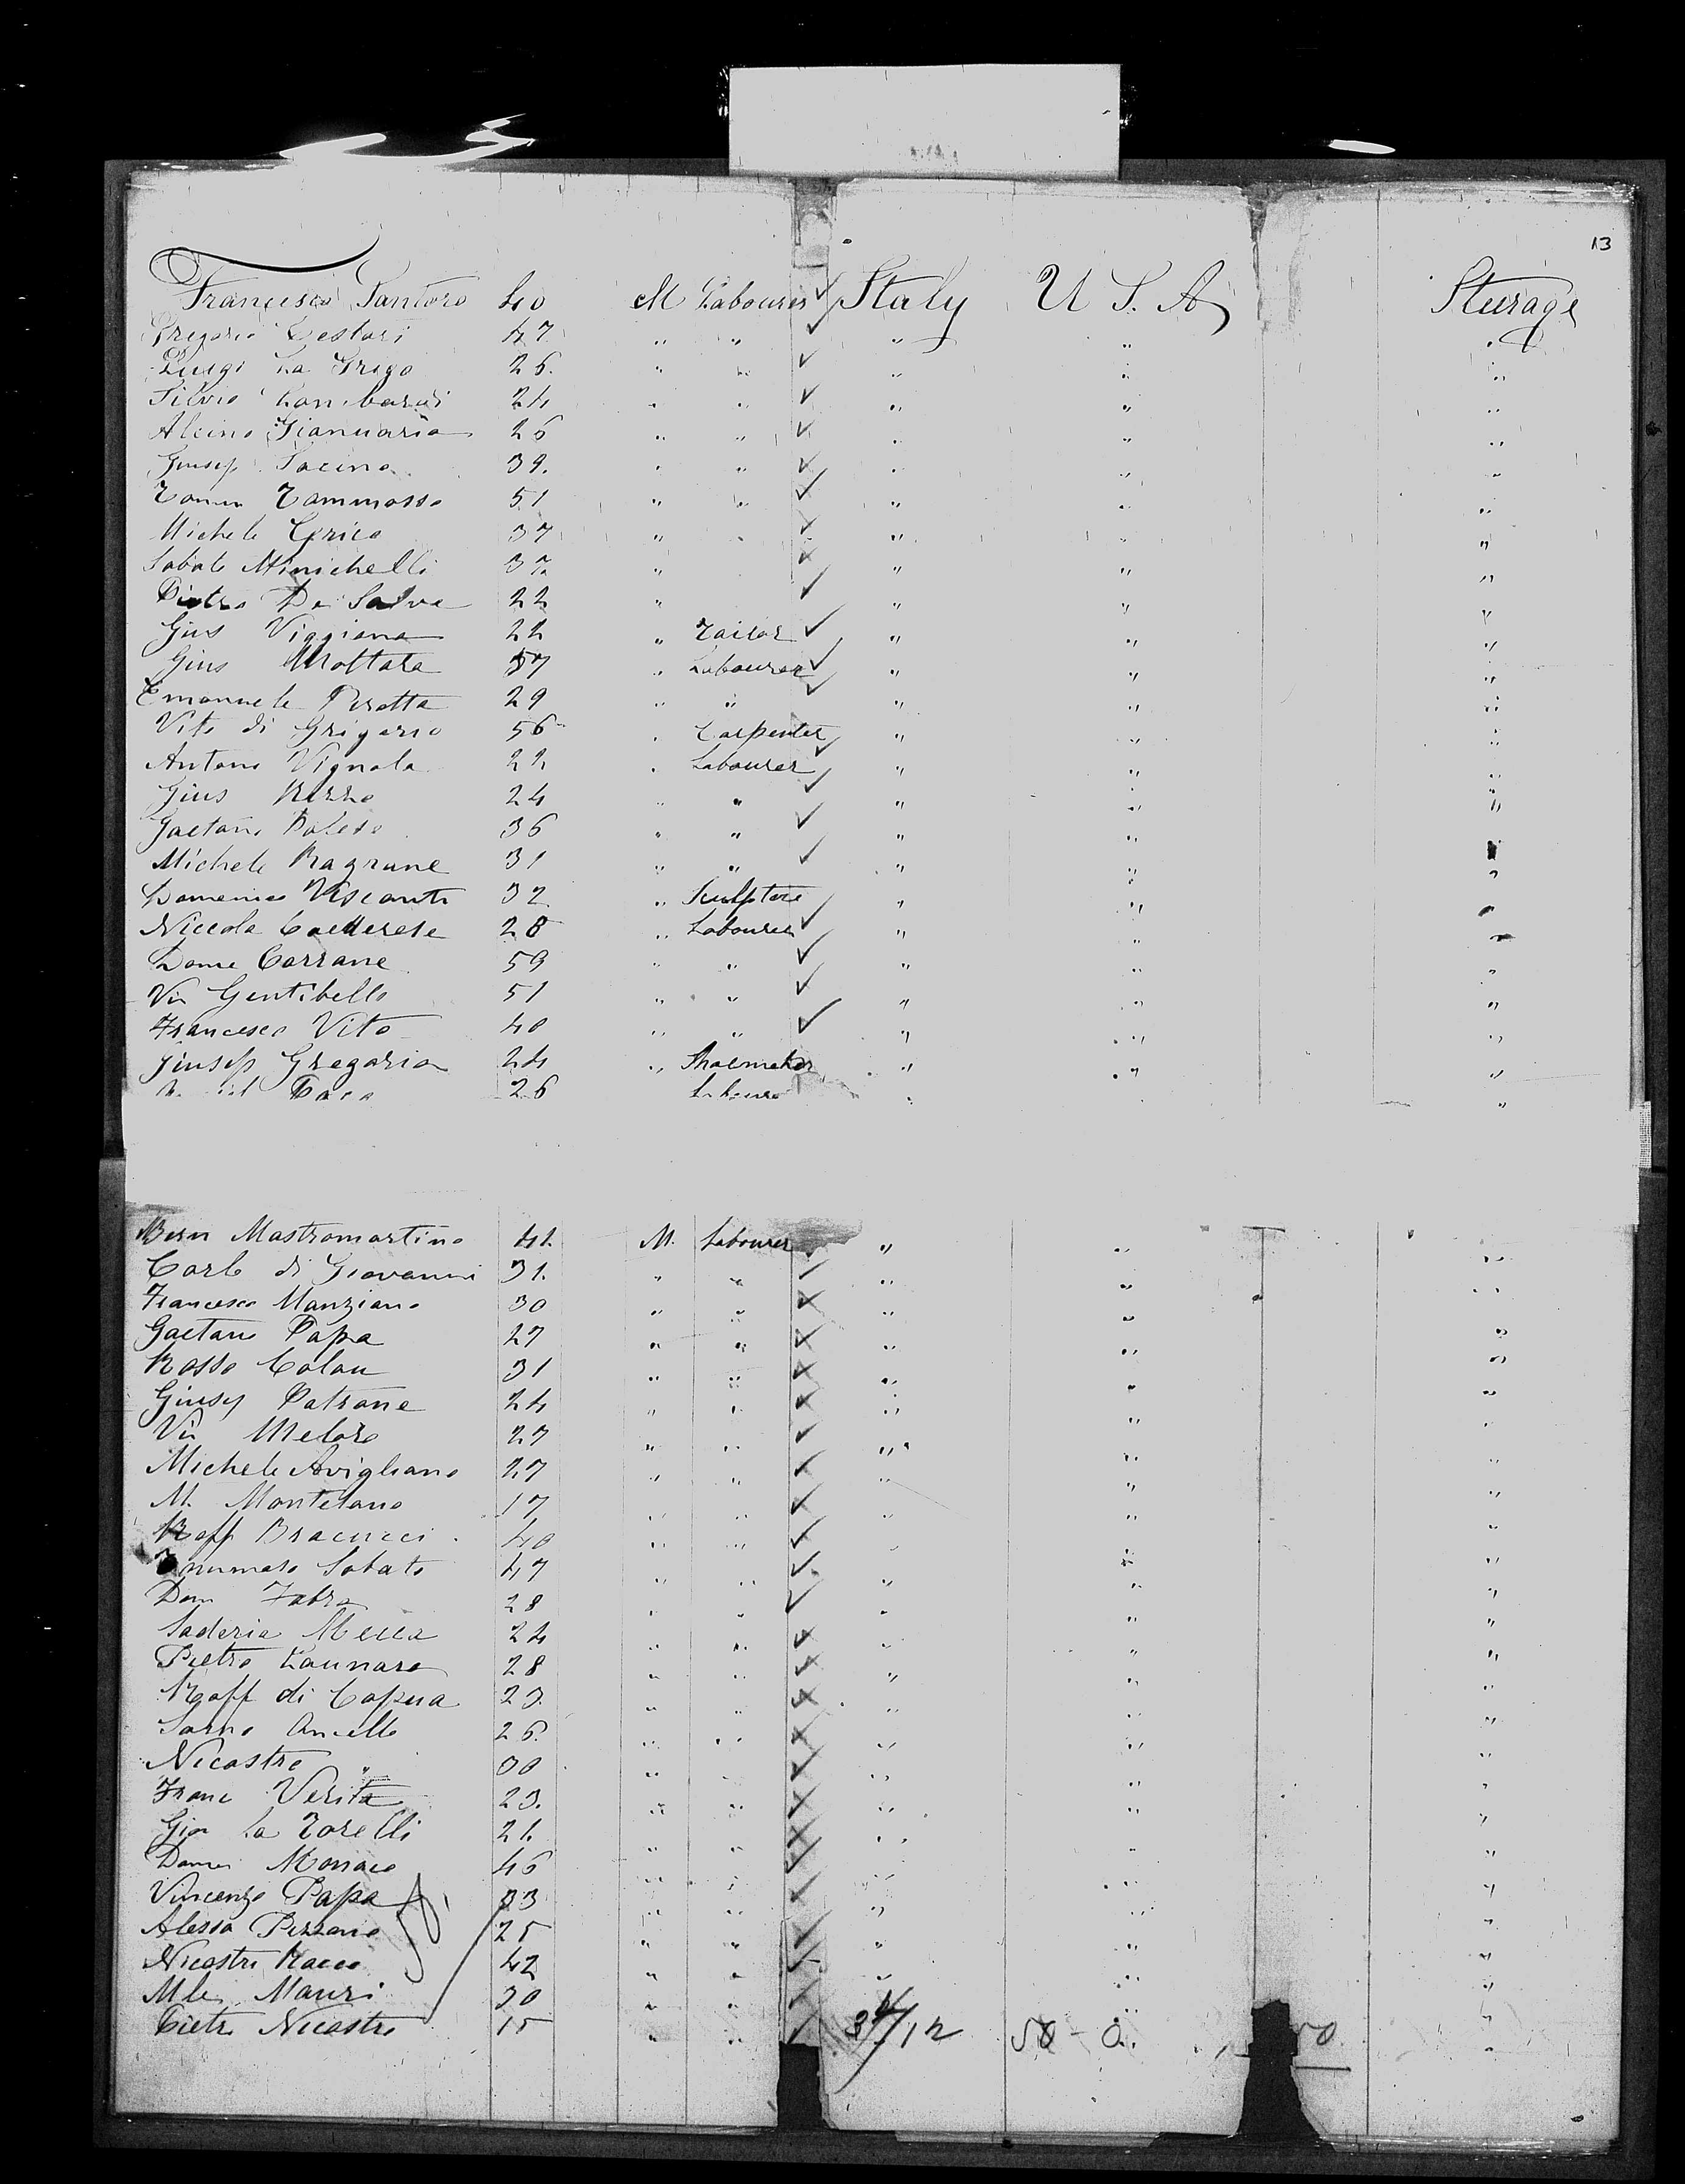 13
Francesco Santoro 40 M Labourer Italy U S. A Sturage
Gregorio Testari 47 " " " " "
Luigi La Grego 26. " " " " "
Silvio Lombardi 24 " " " " "
Alcino Gianuario 26 " " " " "
Giusep Sacino 39. " " " " "
Tammosso 51 " " " " "
Michele Cprico 37 " " " " "
Sabato Minichelli 37 " " " "
Pietro De Salva 22 " " " "
Gius Viggiano 22 " Tailor " " "
Gius Mottola 57 " Labourer " " "
Emanuele Pirotta 29 " " " " "
Vito di Grigorio 56 " Carpenter " " "
Antono Vignola 22 " Labourer " " "
Gius 24 " " " " "
Gaetano 36 " " " " "
Michele Ragrune 31 " " " " "
Domenico Visconti 32 " Sculptore " " "
Niccola 28 " Labourer " " "
Dome Carrane 59 " " " " "
Vin Gentibello 51 " " " " "
Francesco Vito 40 " " " " "
Giusep Gregorio 24 " Shoemaker " " "
26 Labourer " "
Bern Mastromartino 41. M. Labourer " " "
Carlo di Giovanni 31. " " " " "
Francesco Manziano 30 " " " " "
Gaetano Papa 27 " " " " "
Rosso Colau 31 " " " " "
Giusep Patrone 24 " " " " "
Vin Meloro 27 " " " " "
Michele Avigliano 27 " " " " "
M. Montelano 17 " " " " "
Raff Bracucci 40 " " " " "
Sabato 47 " " " " "
Dom Fabra 28 " " " " "
Saderia Mecca 24 " " " " "
Pietro Launaro 28 " " " " "
Raff di Capua 23. " " " " "
Sarno Aniello 26. " " " " "
Nicastro " 30 " " " " "
Franc Verita 23. " " " " "
Gio La Torelli 21. " " " " "
Domi Monaco 46 " " " " "
Vincenzo Papa 33 " " " " "
Alessa Pizzano 25 " " " " "
Nicastri Rocco 42 " " " " "
Mle Mauri 30 " " " "
Pietro Nicastro 15 " " 34/12 50 - 0. "